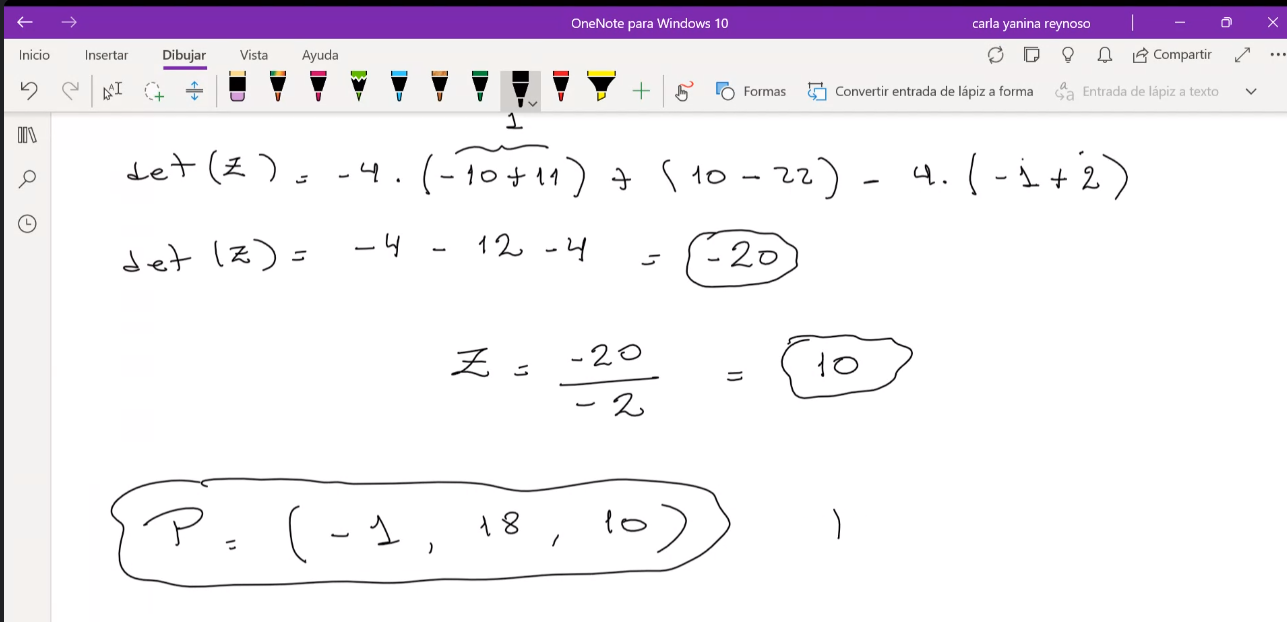 OneNote para Windows 10
carla yanina reynoso
Inicio Insertar Dibujar Vista Ayuda
Compartir
Formas
Convertir entrada de lápiz a forma
Entrada de lápiz a texto
1
det (Z) = -4 . (-10+11) + (10 - 22) - 4. (-1 + 2)
det (Z) = -4 - 12 - 4 = -20
Z = -20 / -2 = 10
P = (-1, 18, 10)